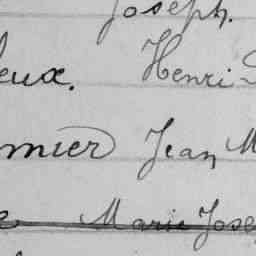 Joseph.
eux. Henri
mier Jean M
e Marie Jose